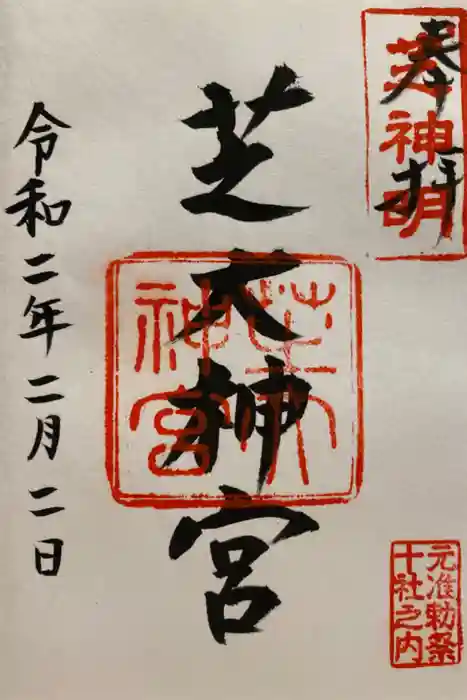 奉拝
芝神明
芝大神宮
芝大
神宮
元准勅祭
十社之内
令和二年二月二日